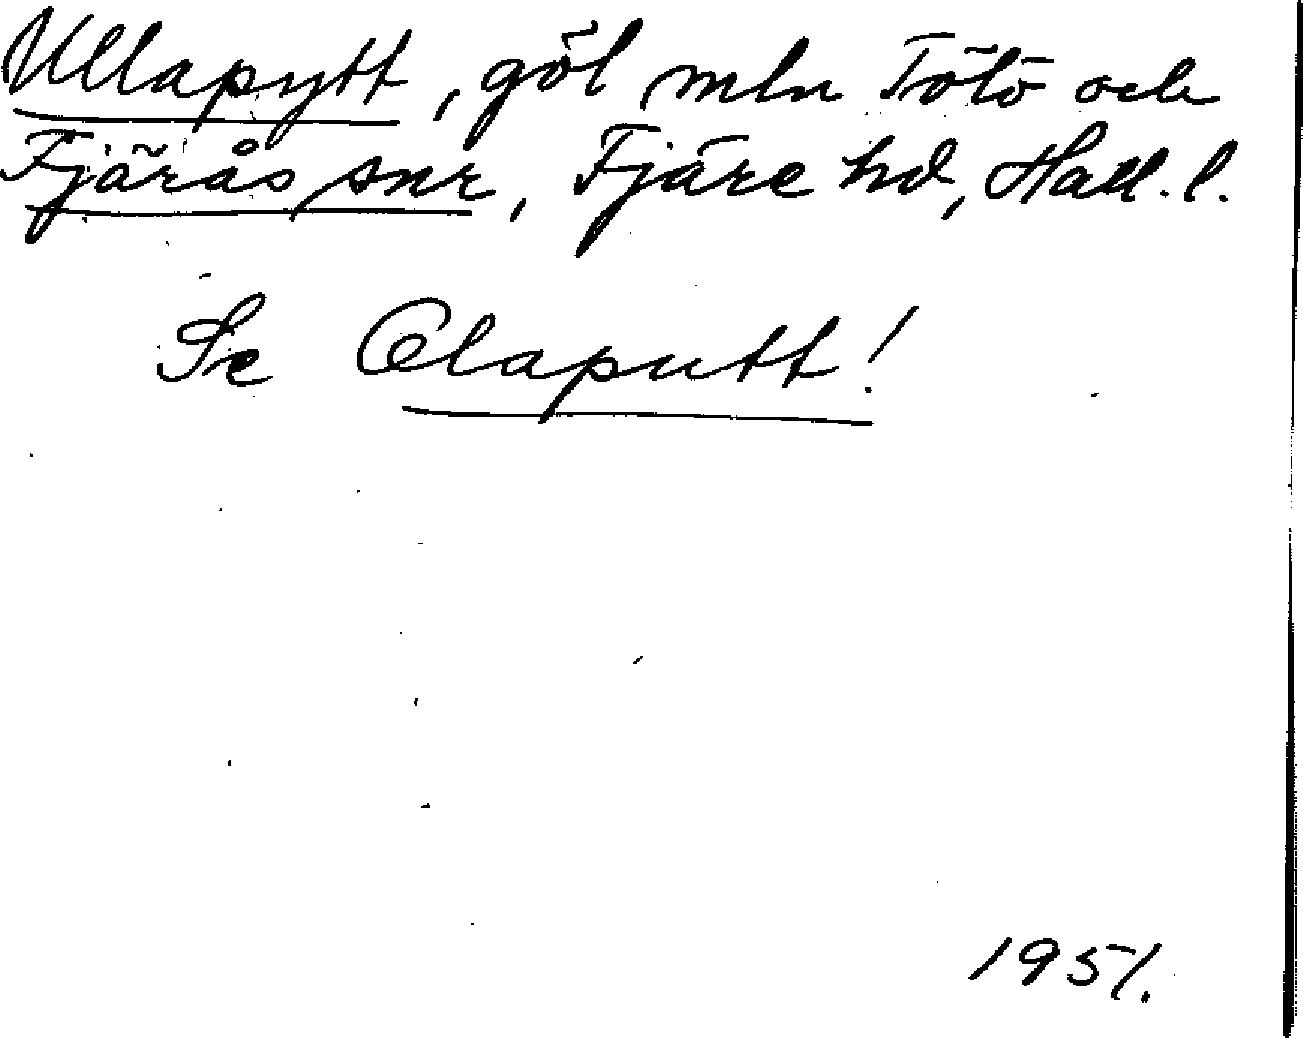 Ullapytt, göl mln Tölö och
Fjärås snr, Fjäre hd, Hall. l.
Se Olaputt!
1951.